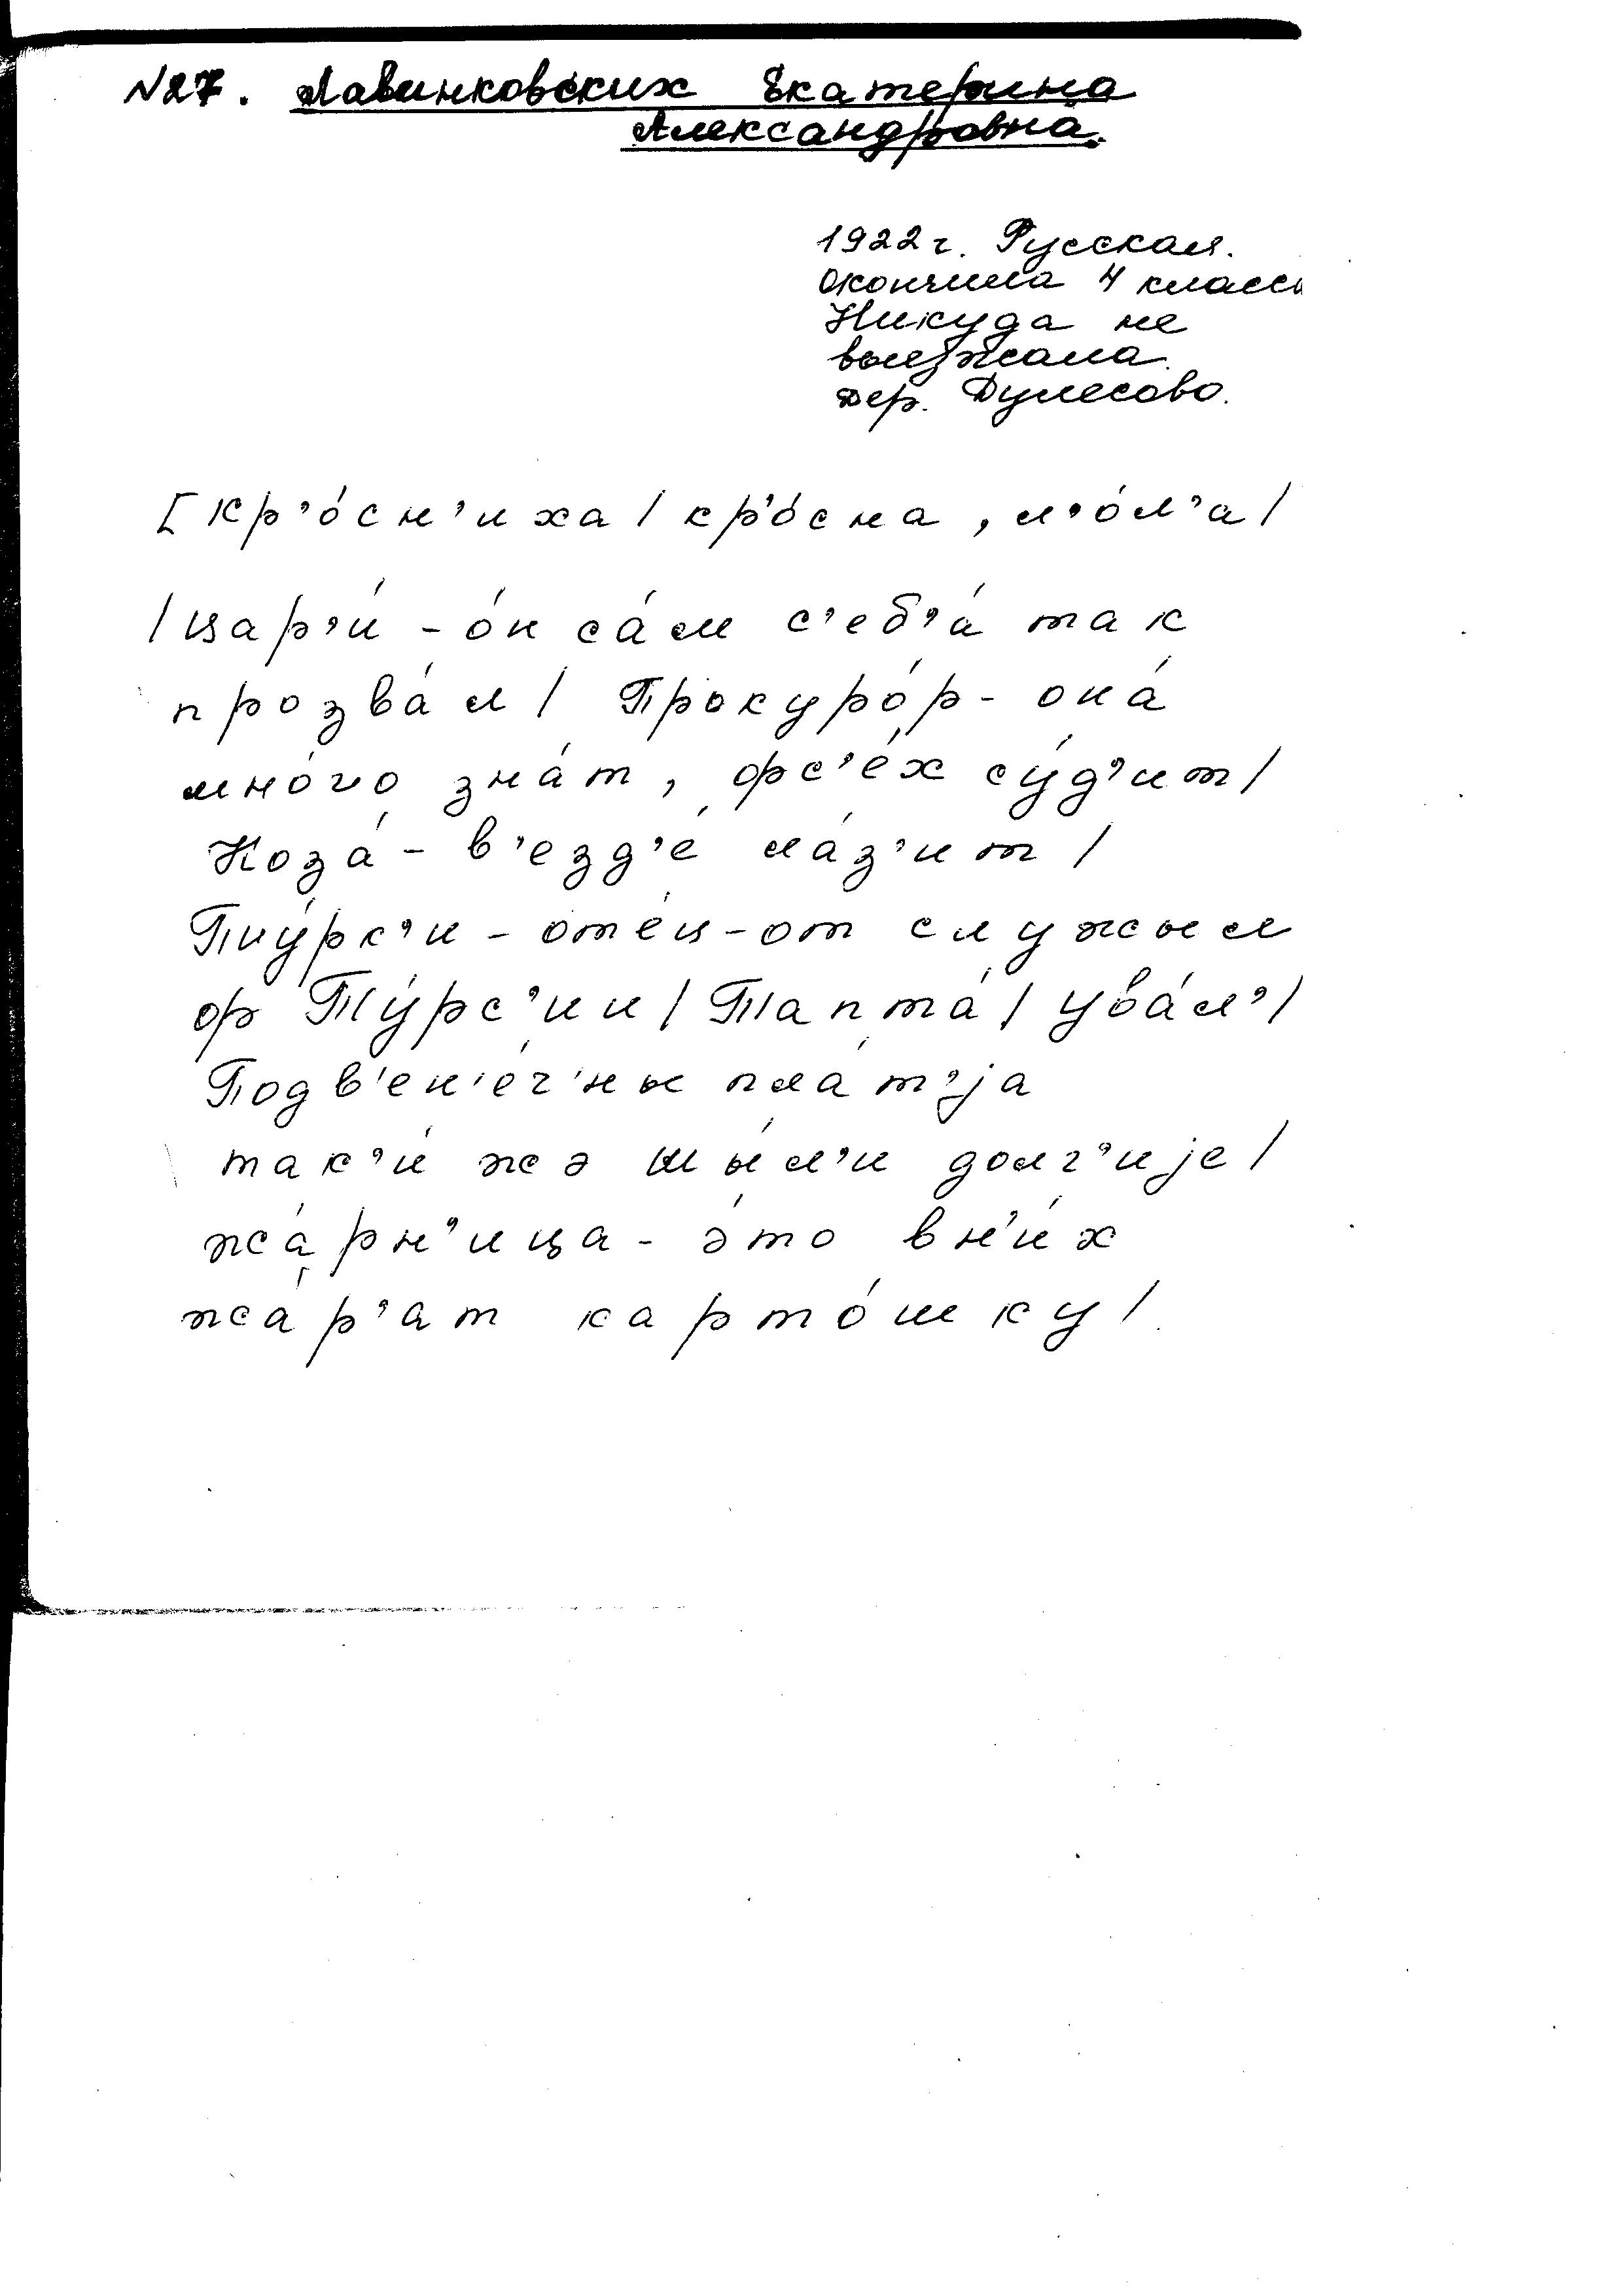 N27. Лавинковских Екатерина
Александровна.
1922 г. Русская.
Окончила 4 классы
Никуда не
выезжала.
Дер. Дулесово.
[кр’о́сн’иха/ кр’о́сна, л’о́л’а/
/цар’и́ - о́н са́м с’еб’а́ так
прозва́л/ Прокуро́р - она́
мно́го зна́т, фс’е́х су́д’ит/
Коза́ - в’езд’е́ ла́з’ит/
оте́ц-от служыл
ф Ту́рс’ии/ Тапта́/ ува́л’/
Подв’ен’е́ч’ны пла́т’jа
так’и́ жэ шы́л’и долг’иjе/
жа́рн’ица - э́то в н’и́х
жа́р’ат карто́шку/.